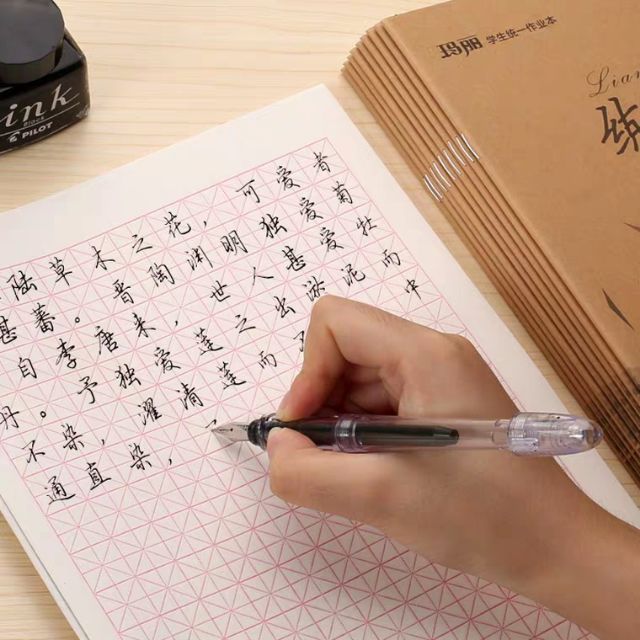 陆草木之花，可爱者
甚蕃。晋陶渊明独爱菊
自李唐来，世人甚爱牡
丹。予独爱莲之出淤泥而
不染，濯清莲而 中
通直染，
ink
PILOT
玛丽 学生统一作业本
Lian
练